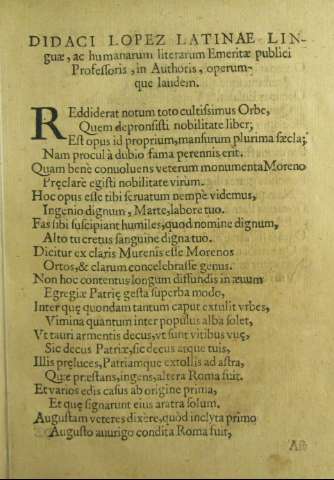 DIDACI LOPEZ LATINAE LIN-
guæ, ac humanarum literarum Emeritæ publici
Professoris, in Authoris, operum-
que laudem.
REddiderat notum toto cultissimus Orbe,
Quem depromsisti nobilitate liber;
Est opus id proprium, mansurum plurima sæcla;
Nam procul à dubio fama perennis erit.
Quam benè conuoluens veterum monumenta Moreno
Pręclarè egisti nobilitate virum.
Hoc opus esse tibi seruatum nempè videmus,
Ingenio dignum, Marte, labore tuo.
Fas sibi suscipiant humiles, quod nomine dignum,
Alto tu cretus sanguine digna tuo.
Dicitur ex claris Murenis esse Morenos
Ortos, & clarum concelebrasse genus.
Non hoc contentus longum diffundis in æuum
Egregiæ Patrię gesta superba modo,
Inter quę quondam tantum caput extulit vrbes,
Vimina quantum inter populus alba solet,
Vt tauri armentis decus, vt sunt vitibus vuę,
Sic decus Patriæ, sic decus atque tuis,
Illis pręluces, Patriamque extollis ad astra,
Quæ præstans, ingens, altera Roma fuit.
Et varios edis casus ab origine prima,
Et quę signarunt eius aratra solum.
Augustam veteres dixère, quòd inclyta primo
Augusto auurigo condita Roma fuit,
Ast